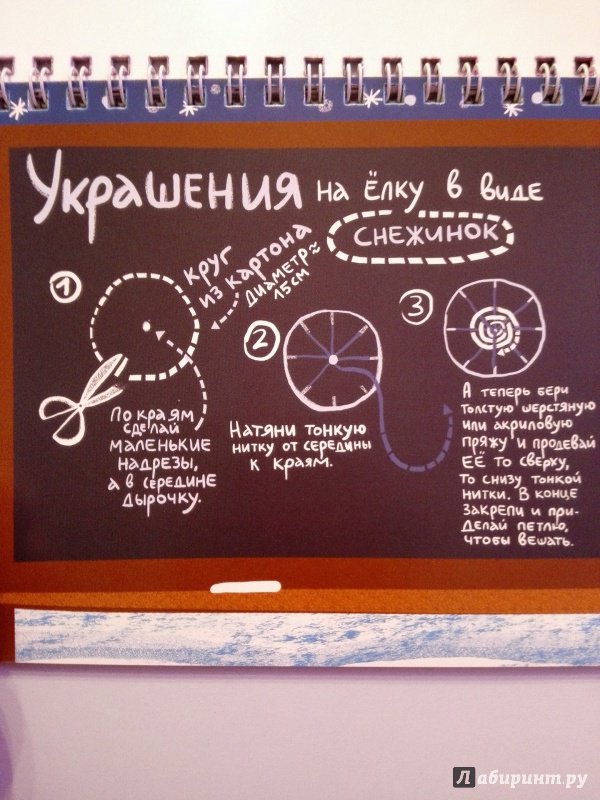 Украшения на ёлку в виде
снежинок
1
круг
из картона
диаметр ~
15 см
По краям
сделай
маленькие
надрезы,
а в середине
дырочку.
2
Натяни тонкую
нитку от середины
к краям.
3
А теперь бери
толстую шерстяную
или акриловую
пряжу и продевай
её то сверху,
то снизу тонкой
нитки. В конце
закрепи и при-
делай петлю,
чтобы вешать.
Лабиринт.ру